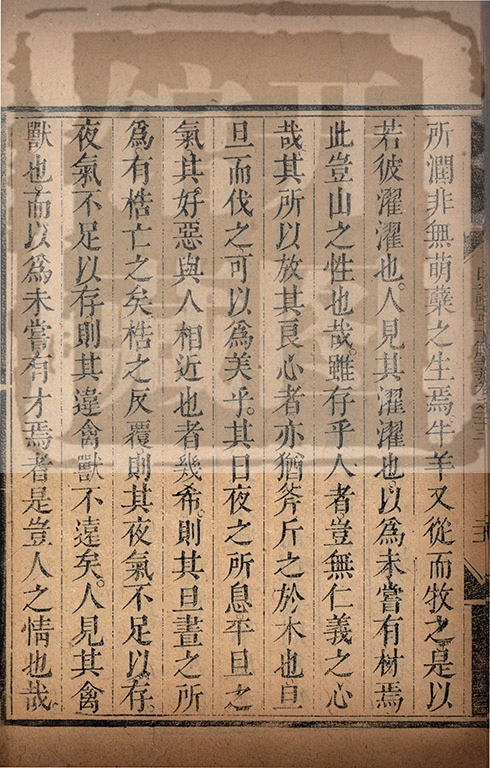 所潤非無萌櫱之生焉牛羊又從而牧之是以
若彼濯濯也。人見其濯濯也。以爲未嘗有材焉
此豈山之性也哉。雖存乎人者豈無仁義之心
哉其所以放其良心者亦猶斧斤之於木也旦
旦而伐之可以爲美乎。其日夜之所息平旦之
氣其。好惡與人相近也者幾希。則其旦晝之所
爲有梏亡之矣梏之反覆則其夜氣不足以存
夜氣不足以存則其違禽獸不遠矣。人見其禽
獸也而以爲未嘗有才焉者是豈人之情也哉。